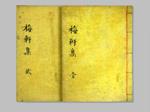 梅軒集 壹
梅軒集 貳